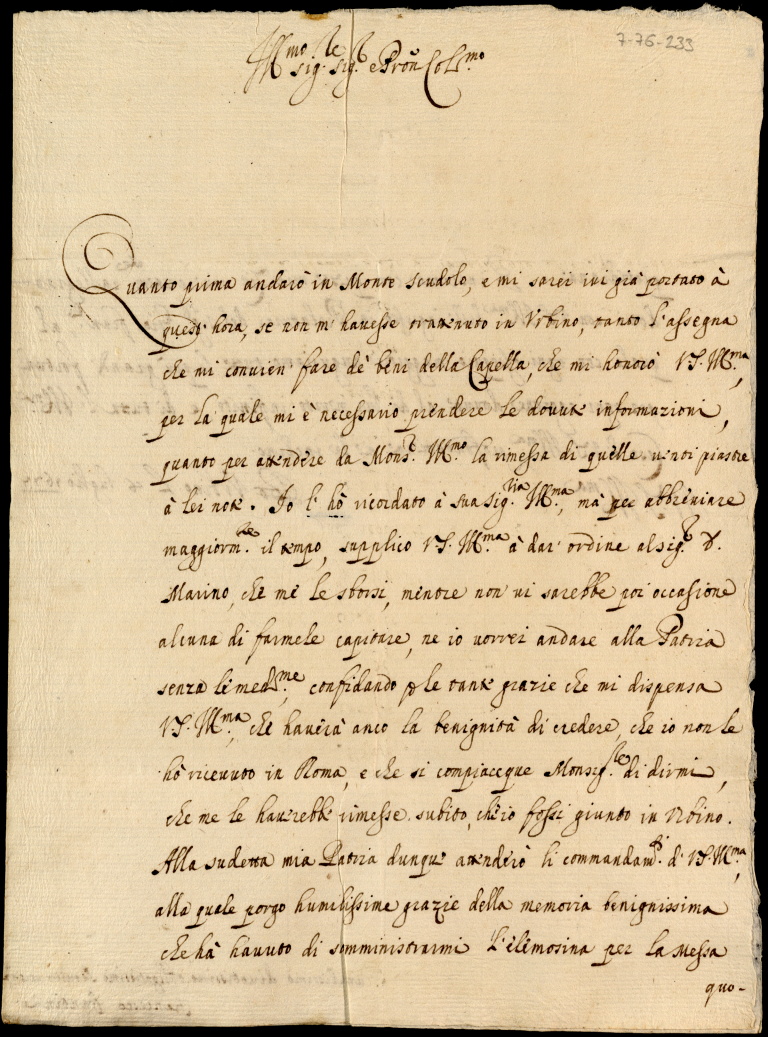 7-76-233
Ill.mo Sig.re Sig.r e Pron Col.mo
Quanto prima andarò in Monte scudolo, e mi sarei ivi già portato à
quest'hora, se non m'havesse trattenuto in Urbino, tanto l'assegna
che mi convien fare de beni della Capella, che mi honorò V.S. Ill.ma,
per la quale mi è necessario prendere le dovute informazioni,
quanto per attendere da Mons.r Ill.mo la rimessa di quelle venti piastre
à lei note. Io l'hò ricordato à sua Sig.ria Ill.ma, mà per abbreviare
maggiorm.te il tempo, supplico V.S. Ill.ma à dar' ordine al sig.r D.
Marino, che me le sborsi, mentre non vi sarebbe poi occasione
alcuna di farmele capitare, ne io vorrei andare alla Patria
senza le med.me, confidando p le tante grazie che mi dispensa
V.S. Ill.ma, che haverà anco la benignità di credere, che io non le
hò ricevuto in Roma, e che si compiacque Monsig.re di dirmi,
che me le havrebbe rimesse subito, ch'io fossi giunto in Urbino.
Alla sudetta mia Patria dunque attenderò li commandam.ti di V.S. Ill.ma,
alla quale porgo humilissime grazie della memoria benignissima
che hà havuto di somministrarmi l'elemosina per la Messa
quo-